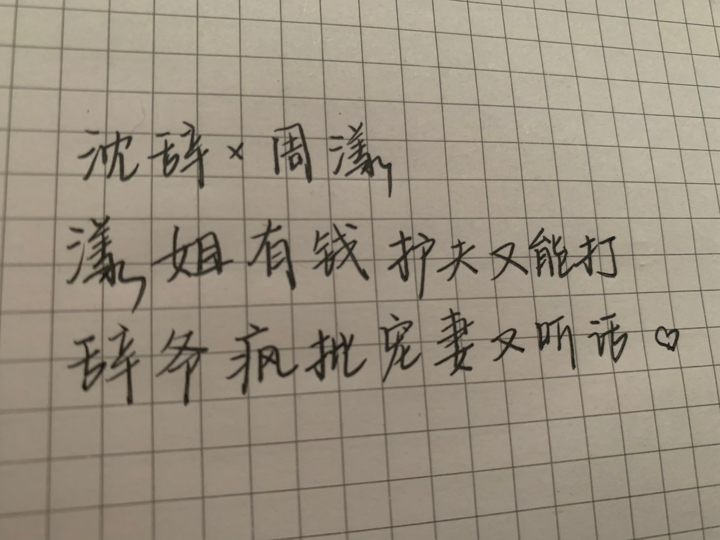 沈辞×周漾
漾姐有钱护夫又能打
辞爷疯批宠妻又听话♡